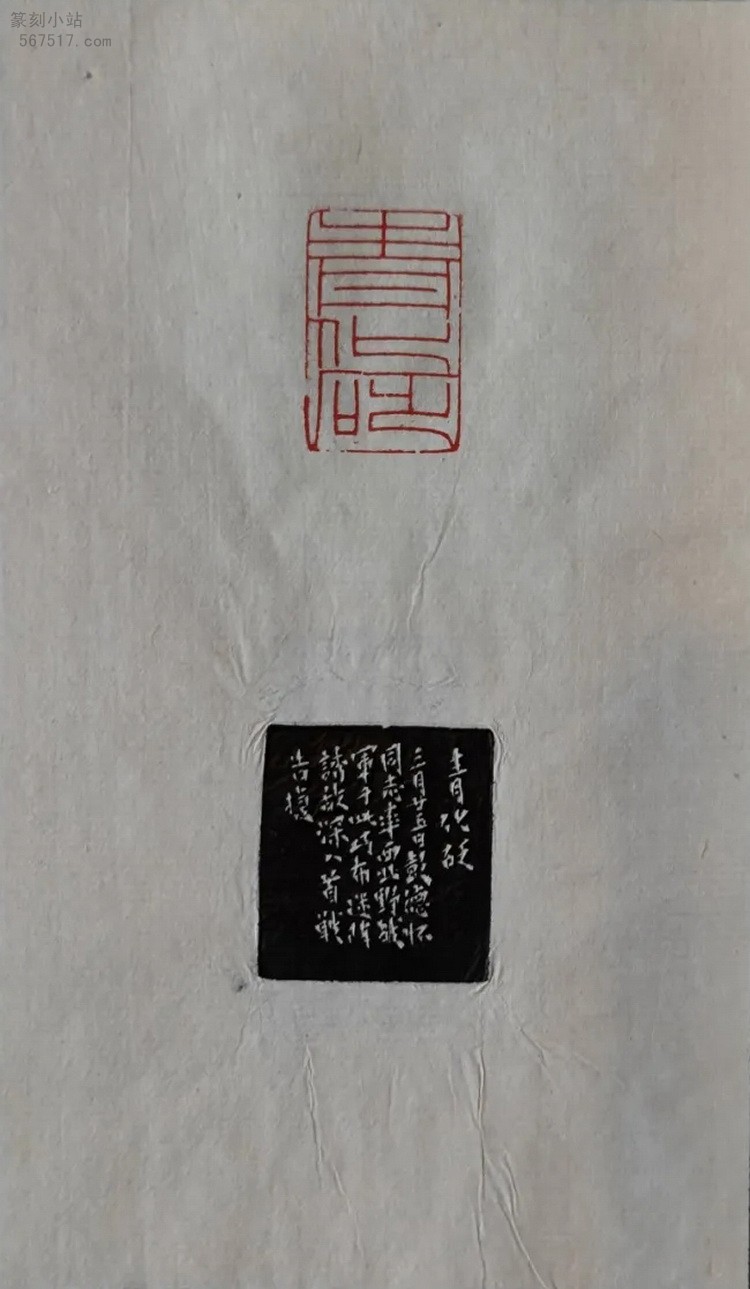 篆刻小站
567517.com
青化砭
青化砭
三月廿五日彭德怀
同志率西北野战
軍于此巧布迷阵
誘敌深入首戰
告捷